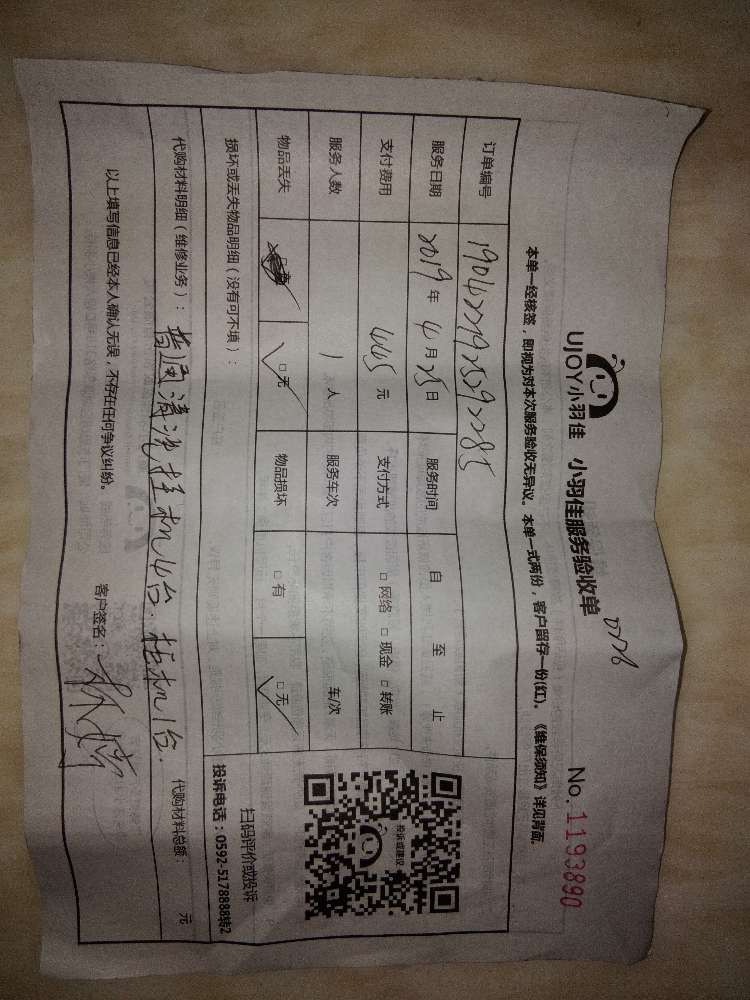 UJOY小羽佳 小羽佳服务验收单 No.1193890
本单一经核签，即视为对本次服务验收无异议。本单一式两份，客户留存一份(红)。《维保须知》详见背面。
订单编号
服务日期 2019年4月25日 服务时间 自 至 止
支付费用 445元 支付方式 □ 网络 □ 现金 □ 转账
服务人数 1人 服务车次 车/次
物品丢失 □无 物品损坏 □有 □无
投诉或建议
扫码评价或投诉
投诉电话：0592-5178888转2
损坏或丢失物品明细（没有可不填）：
代购材料明细（维修业务）：普通清洗挂机4台. 柜机1台. 代购材料总额： 元
以上填写信息已经本人确认无误，不存在任何争议纠纷。 客户签名：